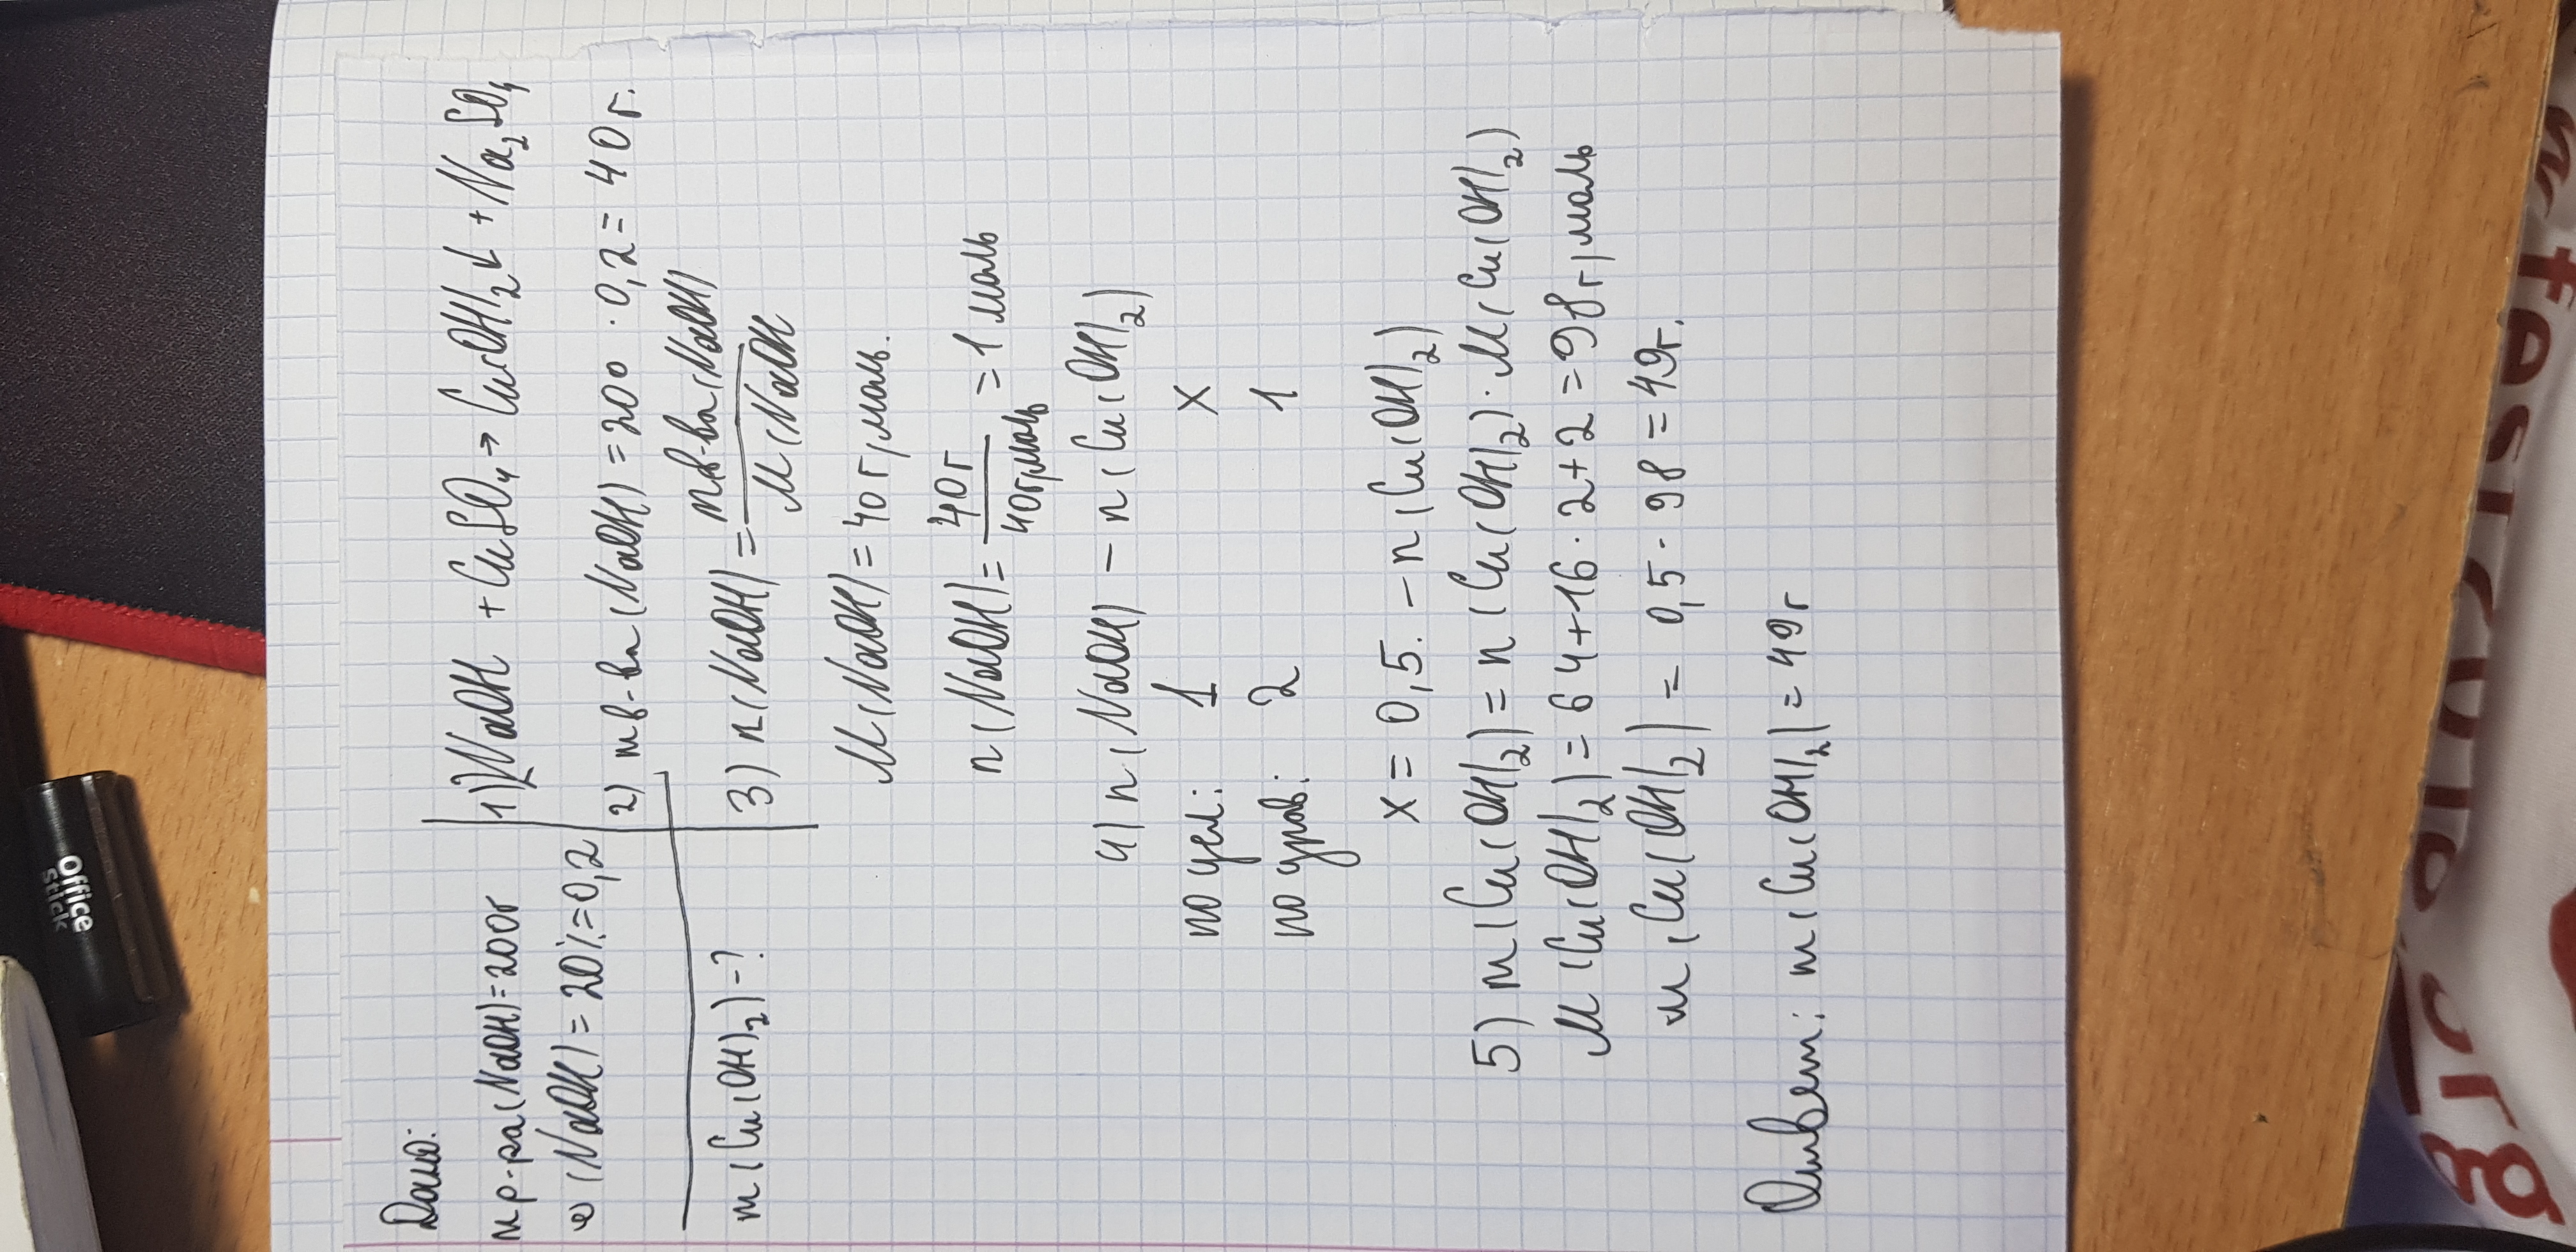 Дано:
m р-ра (NaOH) = 200г
ω (NaOH) = 20% = 0,2
m (Cu(OH)2) - ?
1) 2NaOH + CuSO4 → Cu(OH)2↓ + Na2SO4
2) m в-ва (NaOH) = 200 · 0,2 = 40 г.
3) n (NaOH) = m в-ва (NaOH) / M (NaOH
M (NaOH) = 40 г/моль.
n (NaOH) = 40 г / 40 г/моль = 1 моль
4) n (NaOH) – n (Cu(OH)2)
по усл: 1 x
по урав: 2 1
x = 0,5. – n (Cu(OH)2)
5) m (Cu(OH)2) = n (Cu(OH)2) · M (Cu(OH)2)
M (Cu(OH)2) = 64+16·2+2 = 98 г/моль
m (Cu(OH)2) = 0,5 · 98 = 49г.
Ответ: m (Cu(OH)2) = 49 г
Office
stick